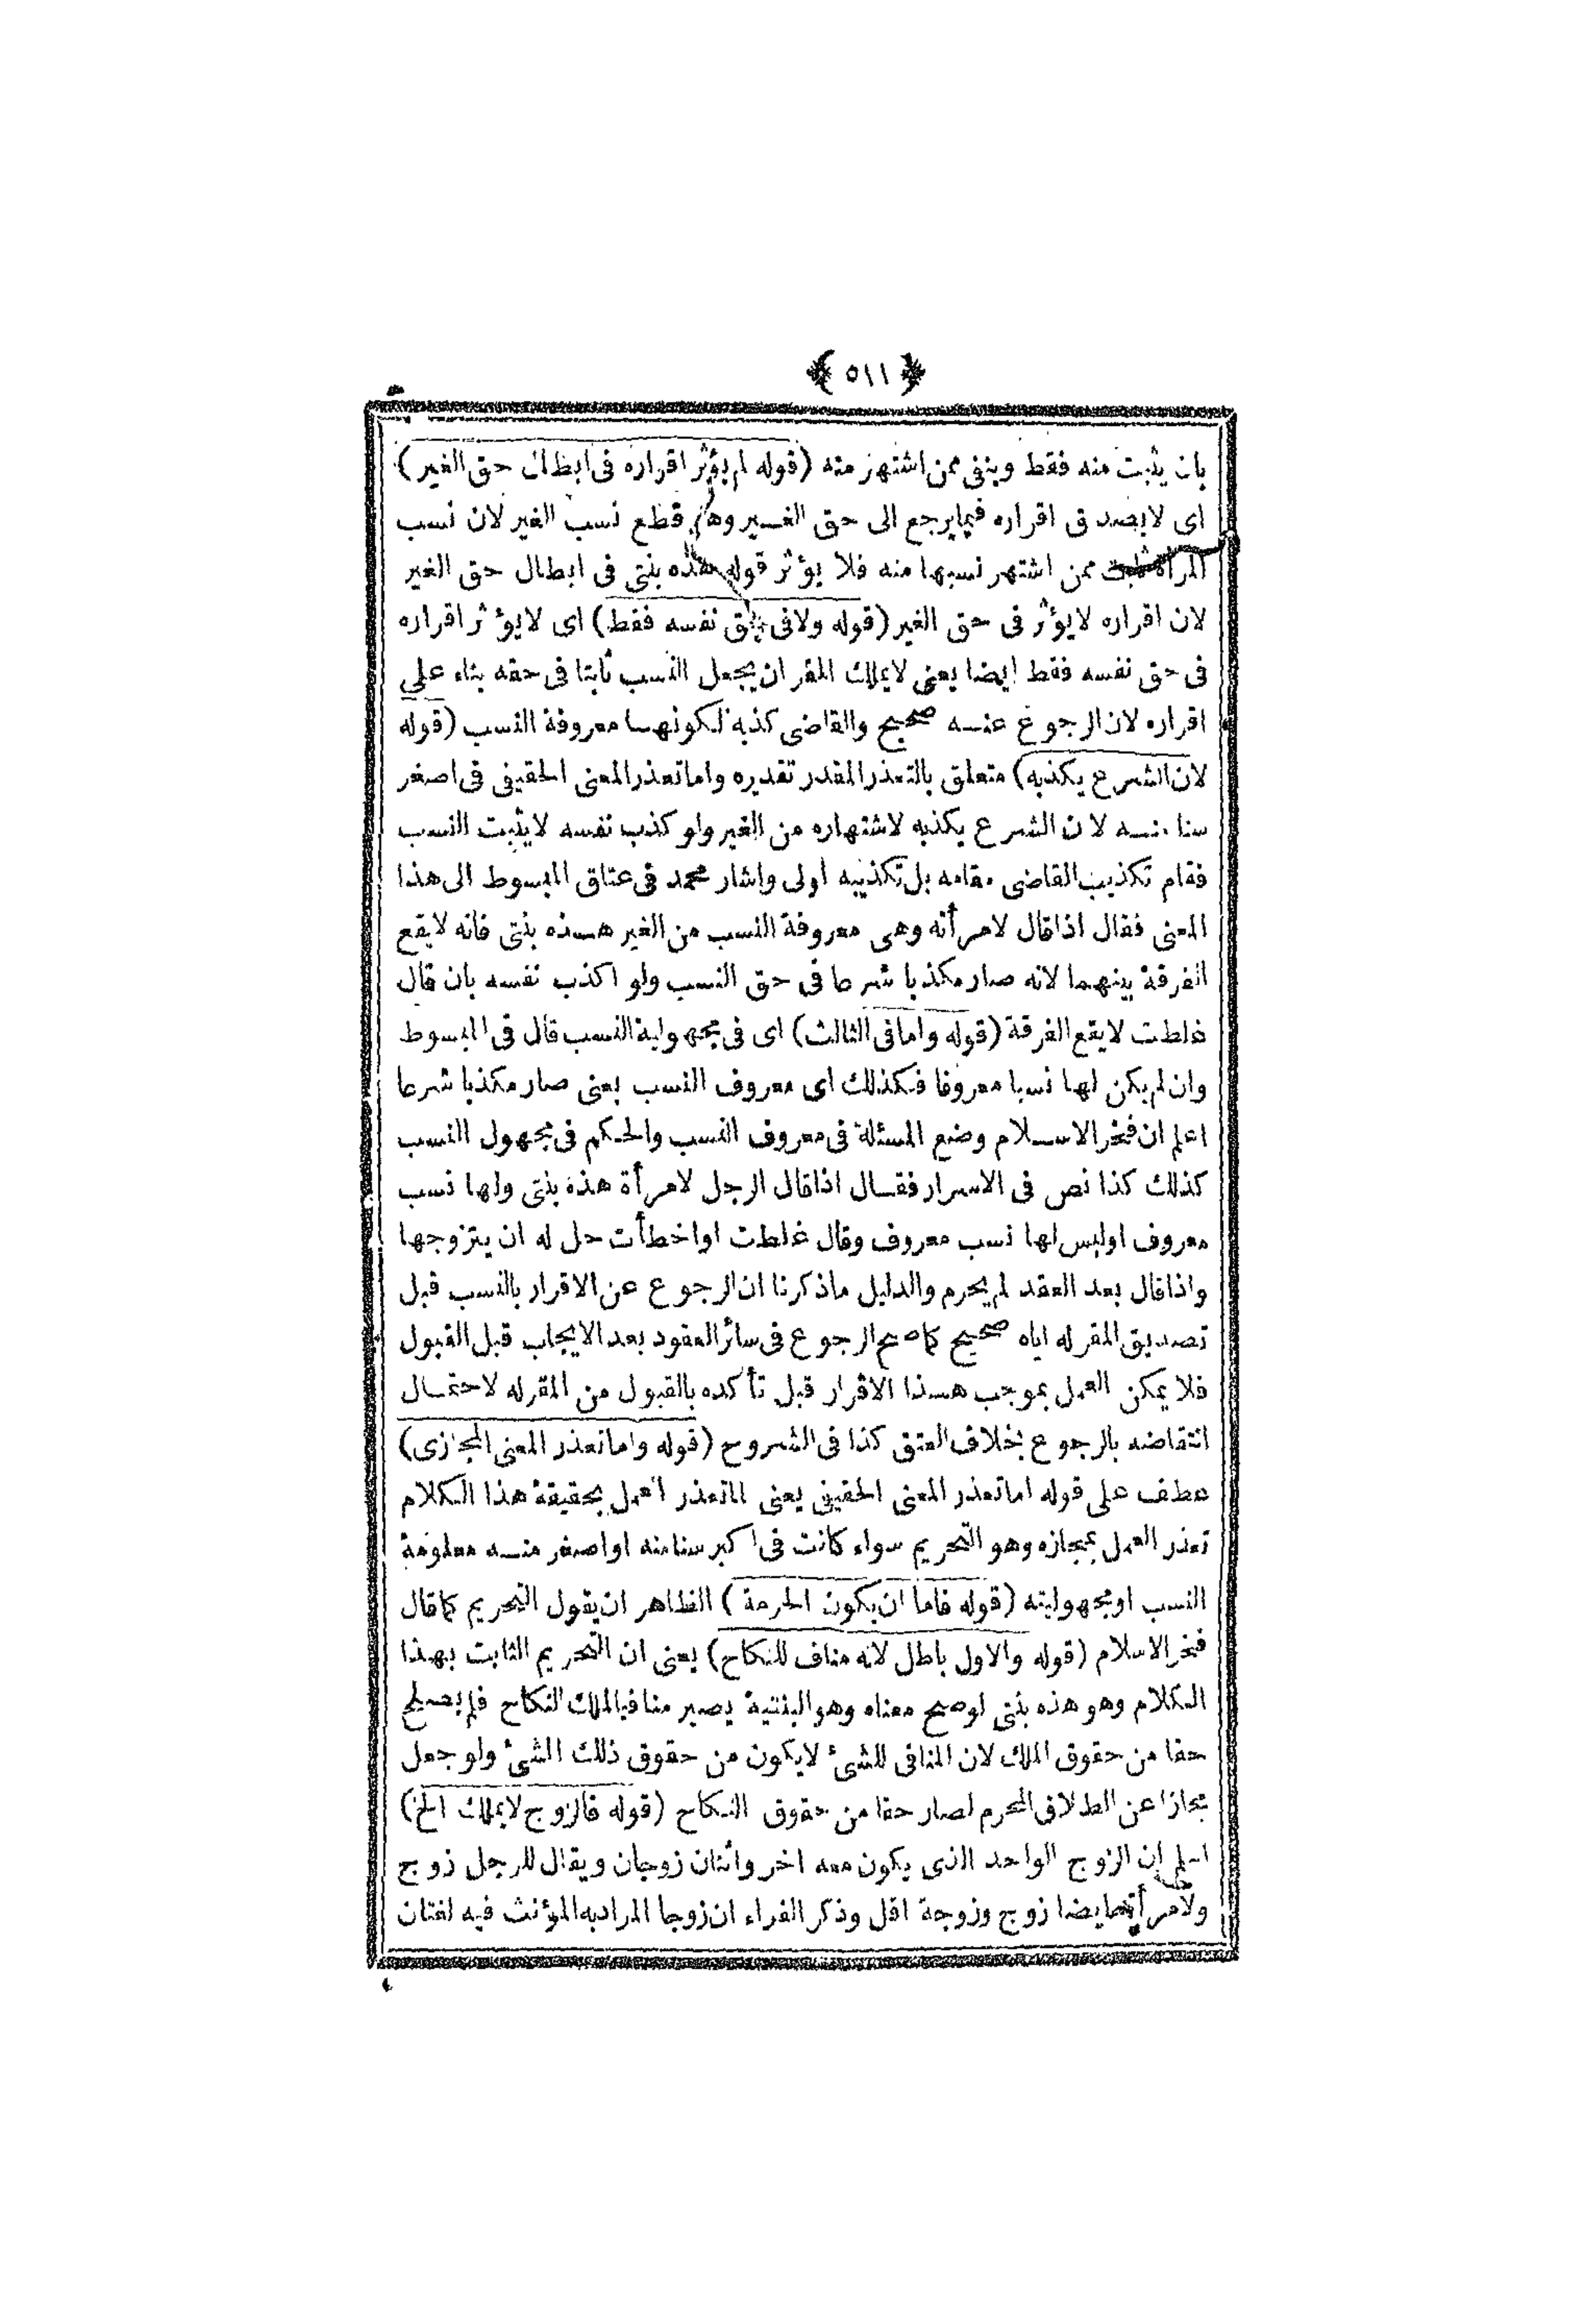 ﴿ ٥١١ ﴾
بان يثبت منه فقط وينفى ممن اشتهر منه (قوله لم يؤثر اقراره فى ابطال حق الغير)
اى لايصدق اقراره فيما يرجع الى حق الغير وهو قطع نسب الغير لان نسب
المرأة ثبت ممن اشتهر نسبها منه فلا يؤثر قوله هذه بنتى فى ابطال حق الغير
لان اقراره لايؤثر فى حق الغير (قوله ولا فى حق نفسه فقط) اى لايؤثر اقراره
فى حق نفسه فقط ايضا يعنى لايملك المقر ان يجعل النسب ثابتا فى حقه بناء على
اقراره لان الرجوع عنه صحيح والقاضى كذبه لكونها معروفة النسب (قوله
لان الشرع يكذبه) متعلق بالتعذر المقدر تقديره واما تعذر المعنى الحقيقى فى اصغر
سنا منه لان الشرع يكذبه لاشتهاره من الغير ولو كذب نفسه لايثبت النسب
فقام تكذيب القاضى مقامه بل تكذيبه اولى واشار محمد فى عتاق المبسوط الى هذا
المعنى فقال اذا قال لامرأته وهى معروفة النسب من الغير هذه بنتى فانه لايقع
الفرقة بينهما لانه صار مكذبا شرعا فى حق النسب ولو اكذب نفسه بان قال
غلطت لايقع الفرقة (قوله واما فى الثالث) اى فى مجهولية النسب قال فى المبسوط
وان لم يكن لها نسبا معروفا فكذلك اى معروف النسب يعنى صار مكذبا شرعا
اعلم ان فخر الاسلام وضع المسئلة فى معروف النسب والحكم فى مجهول النسب
كذلك كذا نص فى الاسرار فقال اذا قال الرجل لامرأة هذه بنتى ولها نسب
معروف اوليس لها نسب معروف وقال غلطت اواخطأت حل له ان يتزوجها
واذا قال بعد العقد لم يحرم والدليل ماذكرنا ان الرجوع عن الاقرار بالنسب قبل
تصديق المقر له اياه صحيح كما صح الرجوع فى سائر العقود بعد الايجاب قبل القبول
فلا يمكن العمل بموجب هذا الاقرار قبل تأكده بالقبول من المقر له لاحتمال
انتقاضه بالرجوع بخلاف العتق كذا فى الشروح (قوله واما تعذر المعنى المجازى)
عطف على قوله اما تعذر المعنى الحقيقى يعنى لما تعذر العمل بحقيقة هذا الكلام
تعذر العمل بمجازه وهو التحريم سواء كانت فى اكبر سنا منه او اصغر منه معلومة
النسب او مجهوليته (قوله فاما ان يكون الحرمة) الظاهر ان يقول التحريم كما قال
فخر الاسلام (قوله والاول باطل لانه مناف للنكاح) يعنى ان التحريم الثابت بهذا
الكلام وهو هذه بنتى لو صح معناه وهو البنتية يصير منافيا لملك النكاح فلم يصلح
حقا من حقوق الملك لان المنافى للشئ لايكون من حقوق ذلك الشئ ولو جعل
مجازا عن الطلاق المحرم لصار حقا من حقوق النكاح (قوله فالزوج لايملك الخ)
اعلم ان الزوج الواحد الذى يكون معه اخر واثنان زوجان ويقال للرجل زوج
ولامرأته ايضا زوج وزوجة اقل وذكر الفراء ان زوجا المراد به المؤنث فيه لغتان